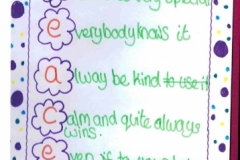 very special
everybody knows it
alway be kind to use it
calm and quite always
wins.
even if to